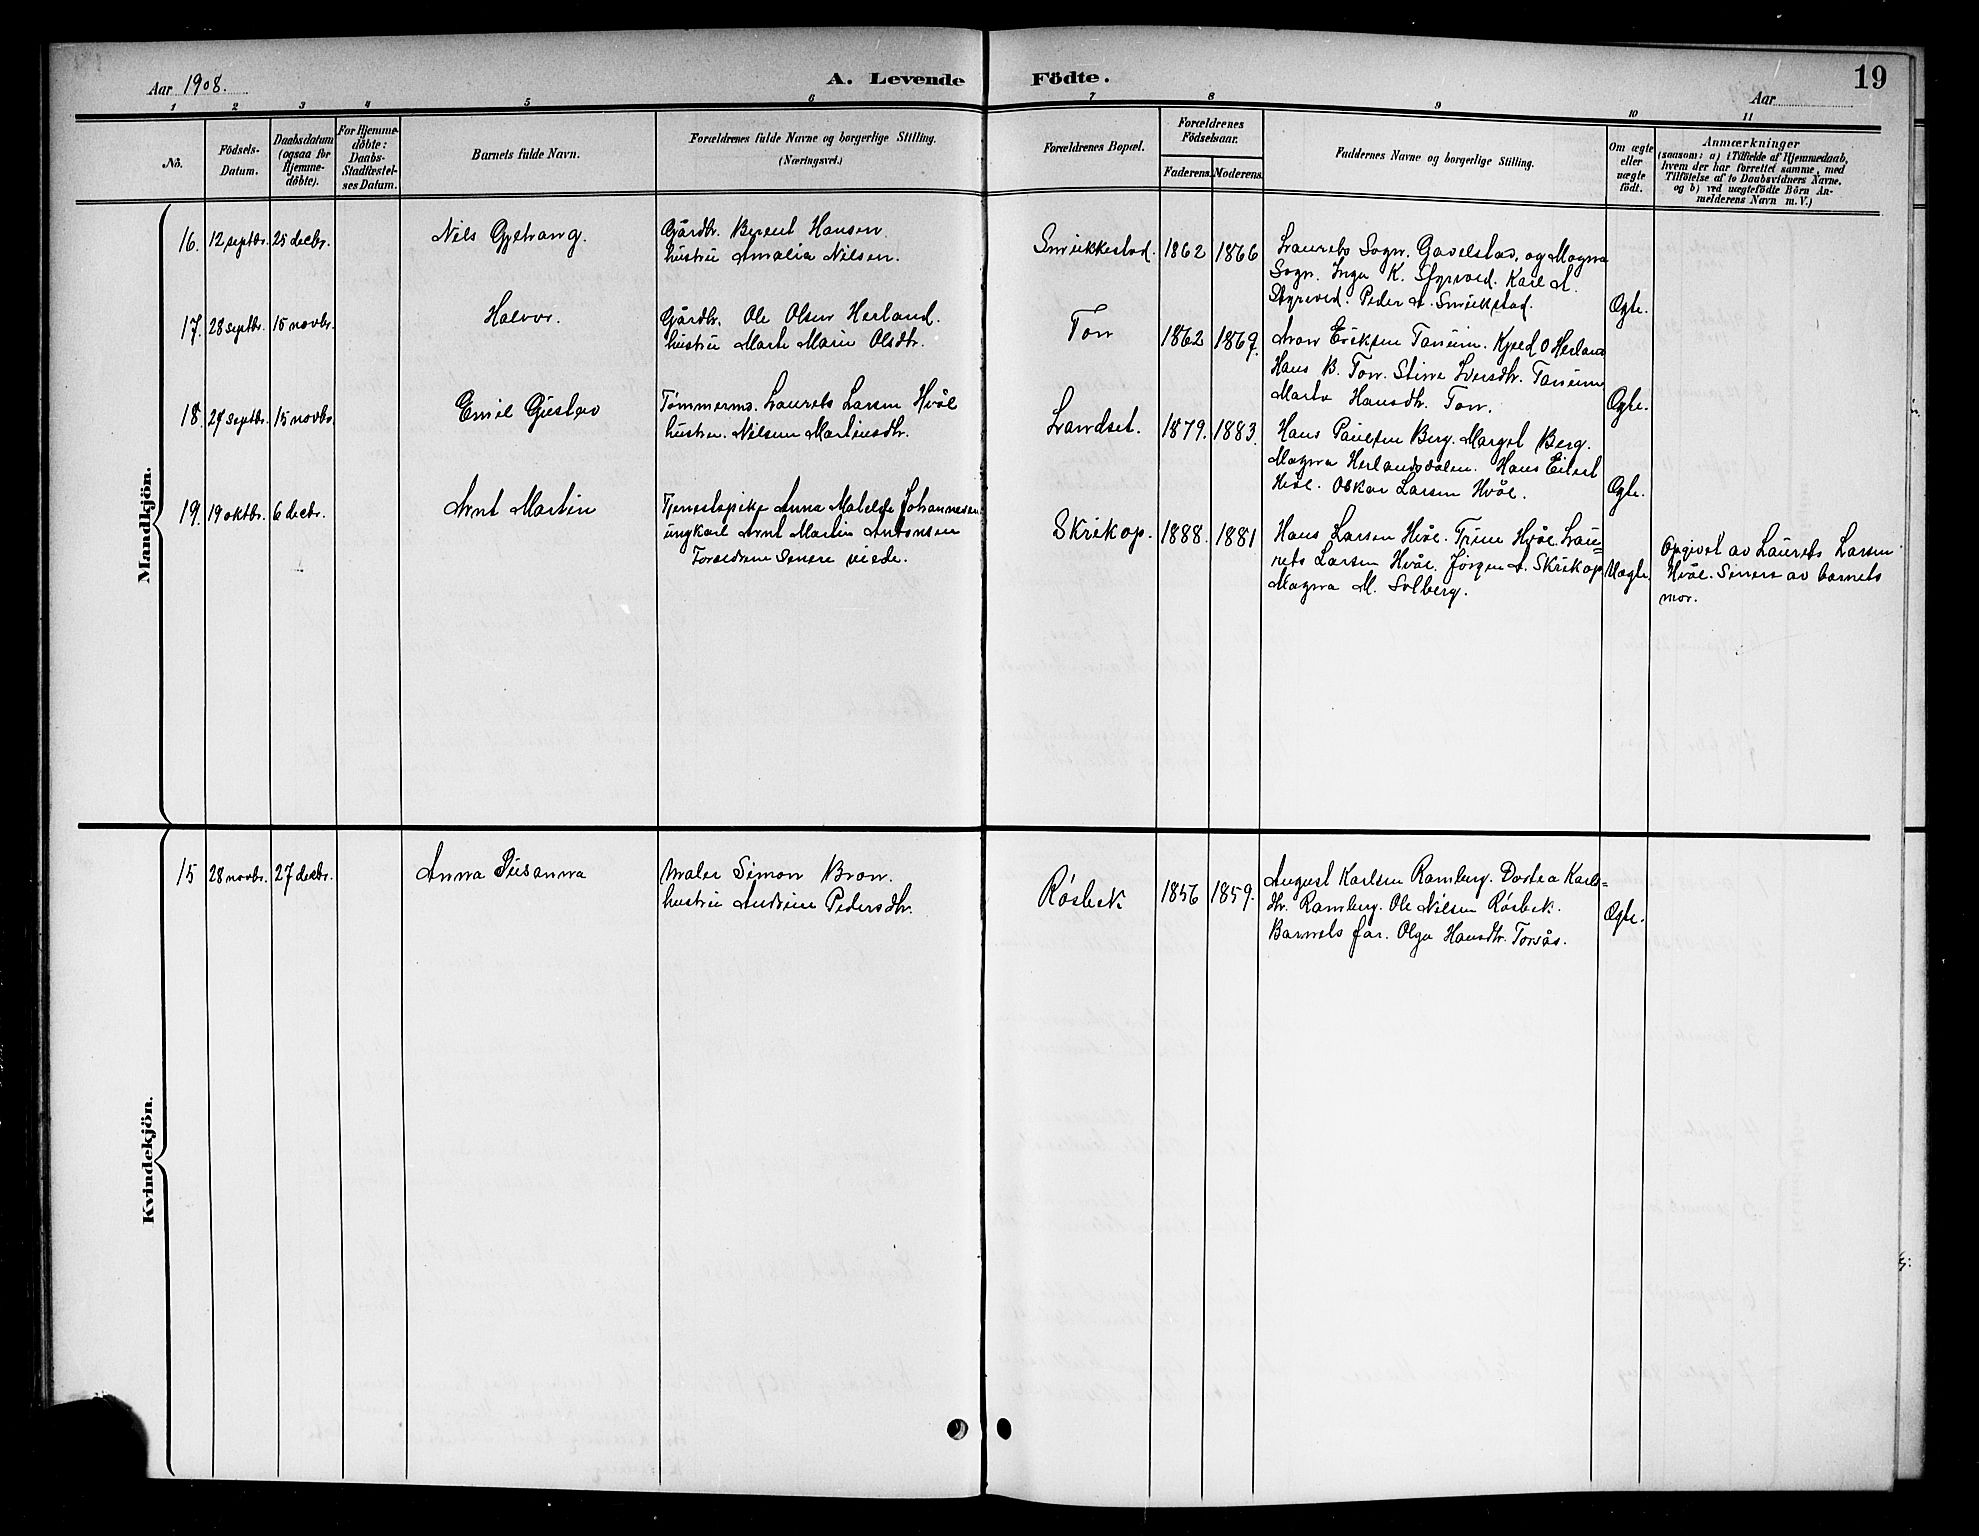 Aar 1908.
A. Levende Födte.
19
Aar
1 2 3 4 5 6 7 8 9 10 11
No.
Födsels-
Datum.
Daabsdatum
(ogsaa for
Hjemme-
döbte).
For Hjemme-
döbte:
Daabs-
Stadfæstel-
ses Datum.
Barnets fulde Navn.
Forældrenes fulde Navne og borgerlige Stilling.
(Næringsvei.)
Forældrenes Bopæl.
Forældrenes
Födselsaar.
Faderens. Moderens.
Faddernes Navne og borgerlige Stilling.
Om ægte
eller
uægte
födt.
Anmærkninger
(saasom: a) i Tilfælde af Hjemmedaab,
hvem der har forrettet samme, med
Tilföielse af to Daabsvidners Navne.
og b) ved uægtefödte Börn An-
melderens Navn m. V.)
Mandkjön.
16. 12 septbr. 25 decbr.
Nils Gjetrang.
Gårdbr. Berent Hansen.
hustru Amalia Nilsen.
Smukkestad. 1862 1866
Laurets Sogn. Gavelstad. og Magna
Sogn. Inga K. Styrvold. Karl A.
Styrvold. Peder A. Smukstad.
Ægte.
17. 28 septbr. 15 novbr.
Halvor.
Gårdbr. Ole Olsen Herland.
hustru Marte Marie Olsdtr.
Ton 1862 1869.
Aron Eriksen Tanum. Kjred O Herland
Hans B. Ton. Stine Iversdtr. Tanum
Marta Hansdtr. Ton.
Ægte.
18. 27 septbr. 15 novbr.
Emil Gustav
Tømmerm. Laurets Larsen Hvål
hustru. Nilsine Martinsdtr.
Landset. 1879. 1883.
Hans Paulsen Berg. Margit Berg.
Magna Herlandsdalen. Hans Eilert
Hvål. Oskar Larsen Hvål.
Ægte.
19. 19 oktbr. 6 decbr.
Arnt Martin
Tjenestepike Anna Matelde Johannesen
ungkarl Arnt Martin Antonsen
Forældrene senere viede.
Skrikop. 1888. 1881
Hans Larsen Hvål. Trine Hvål. Lau=
rets Larsen Hvål. Jørgen A. Skrikop
Magna M. Solberg.
Uægte.
Opgivet av Laurets Larsen
Hvål. Senere av barnets
mor.
Kvindekjön.
15 28 novbr. 27 decbr.
Anna Susanna
Maler Simon Bron.
hustru Andrine Pedersdtr.
Røsbek 1856 1859.
August Karlsen Ramberg. Dortea Karls=
dtr. Ramberg. Ole Nilsen Røsbek.
Barnets far. Olga Hansdtr. Torsås.
Ægte.